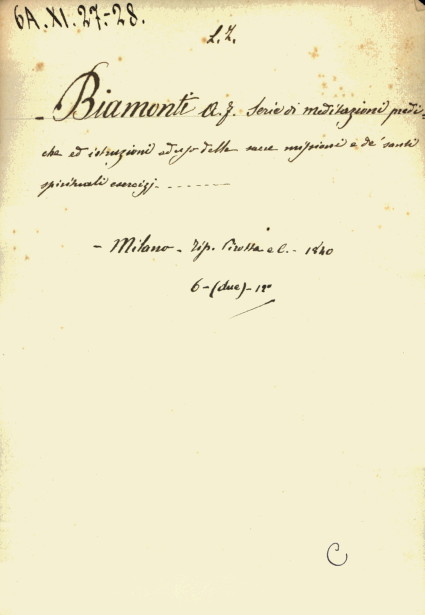 6A.XI.27-28.
L.Z.
- Biamonti A. F. Serie di meditazioni predi-
che ed istruzioni ad uso delle sacre missioni e de' santi
spirituali esercizj - - - - - - -
- Milano - Tip. Pirotta e C. - 1840
6 - (due) - 12°
C